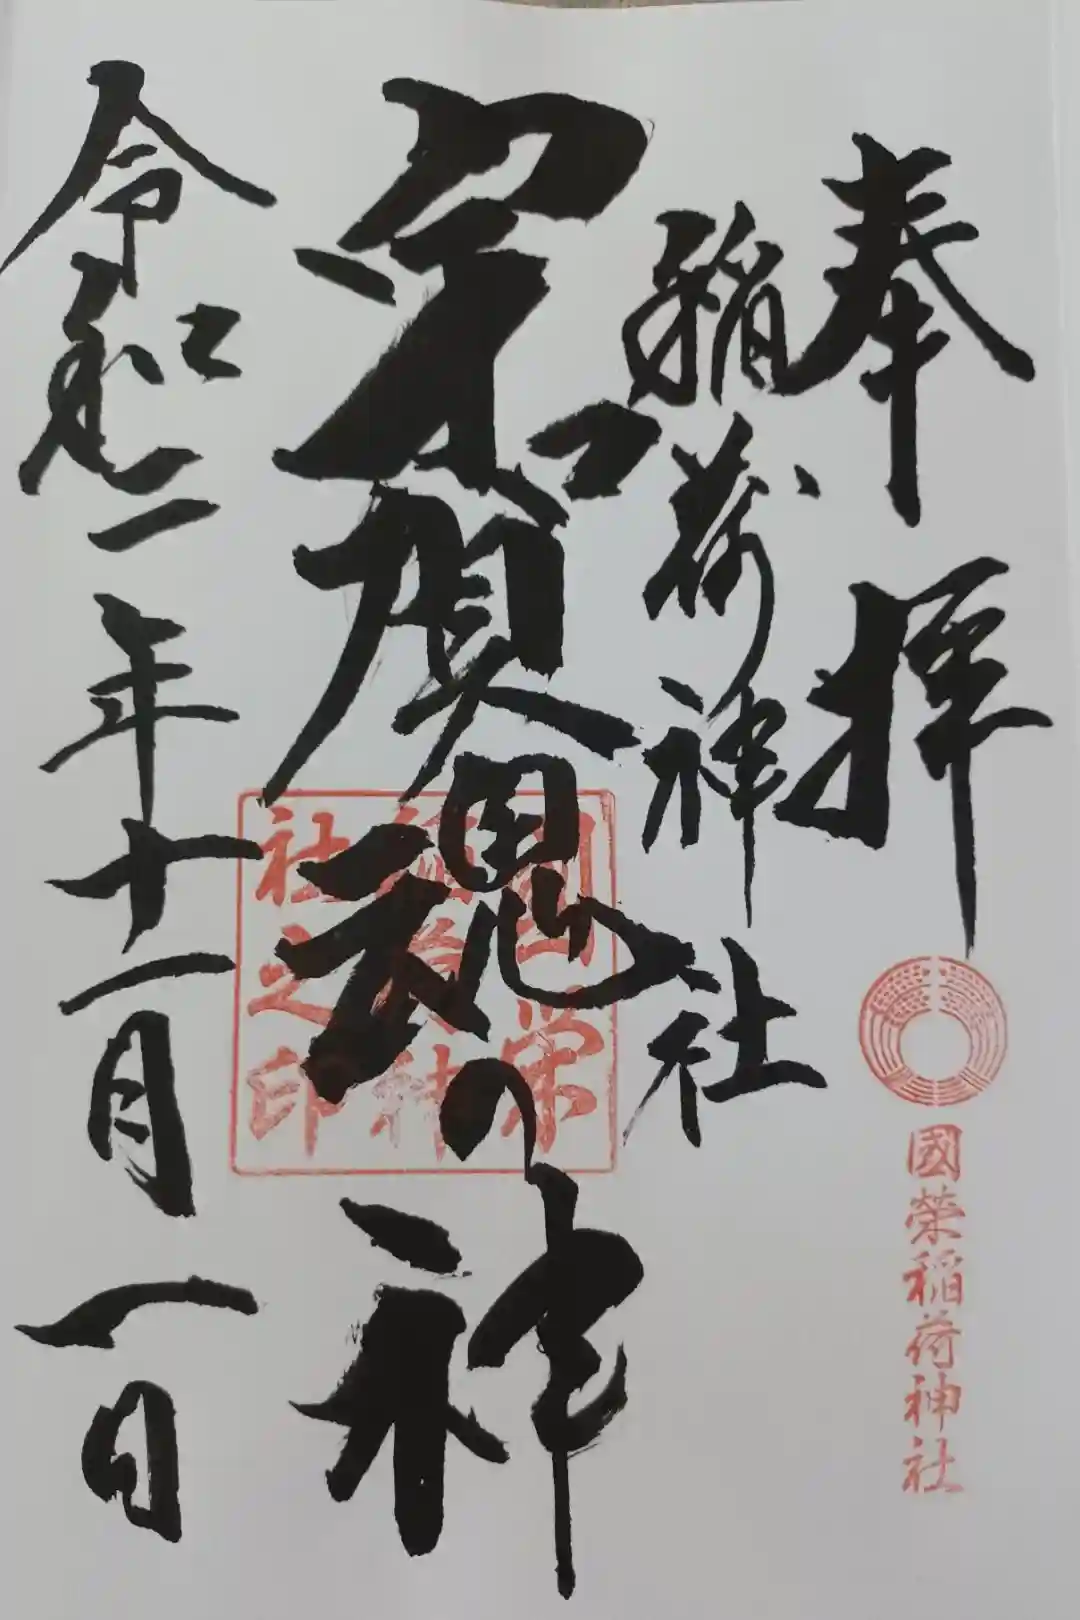 奉拝
國榮稲荷神社
稲荷神社
宇賀魂の神
國榮
稲荷神
社之印
令和二年十一月一日